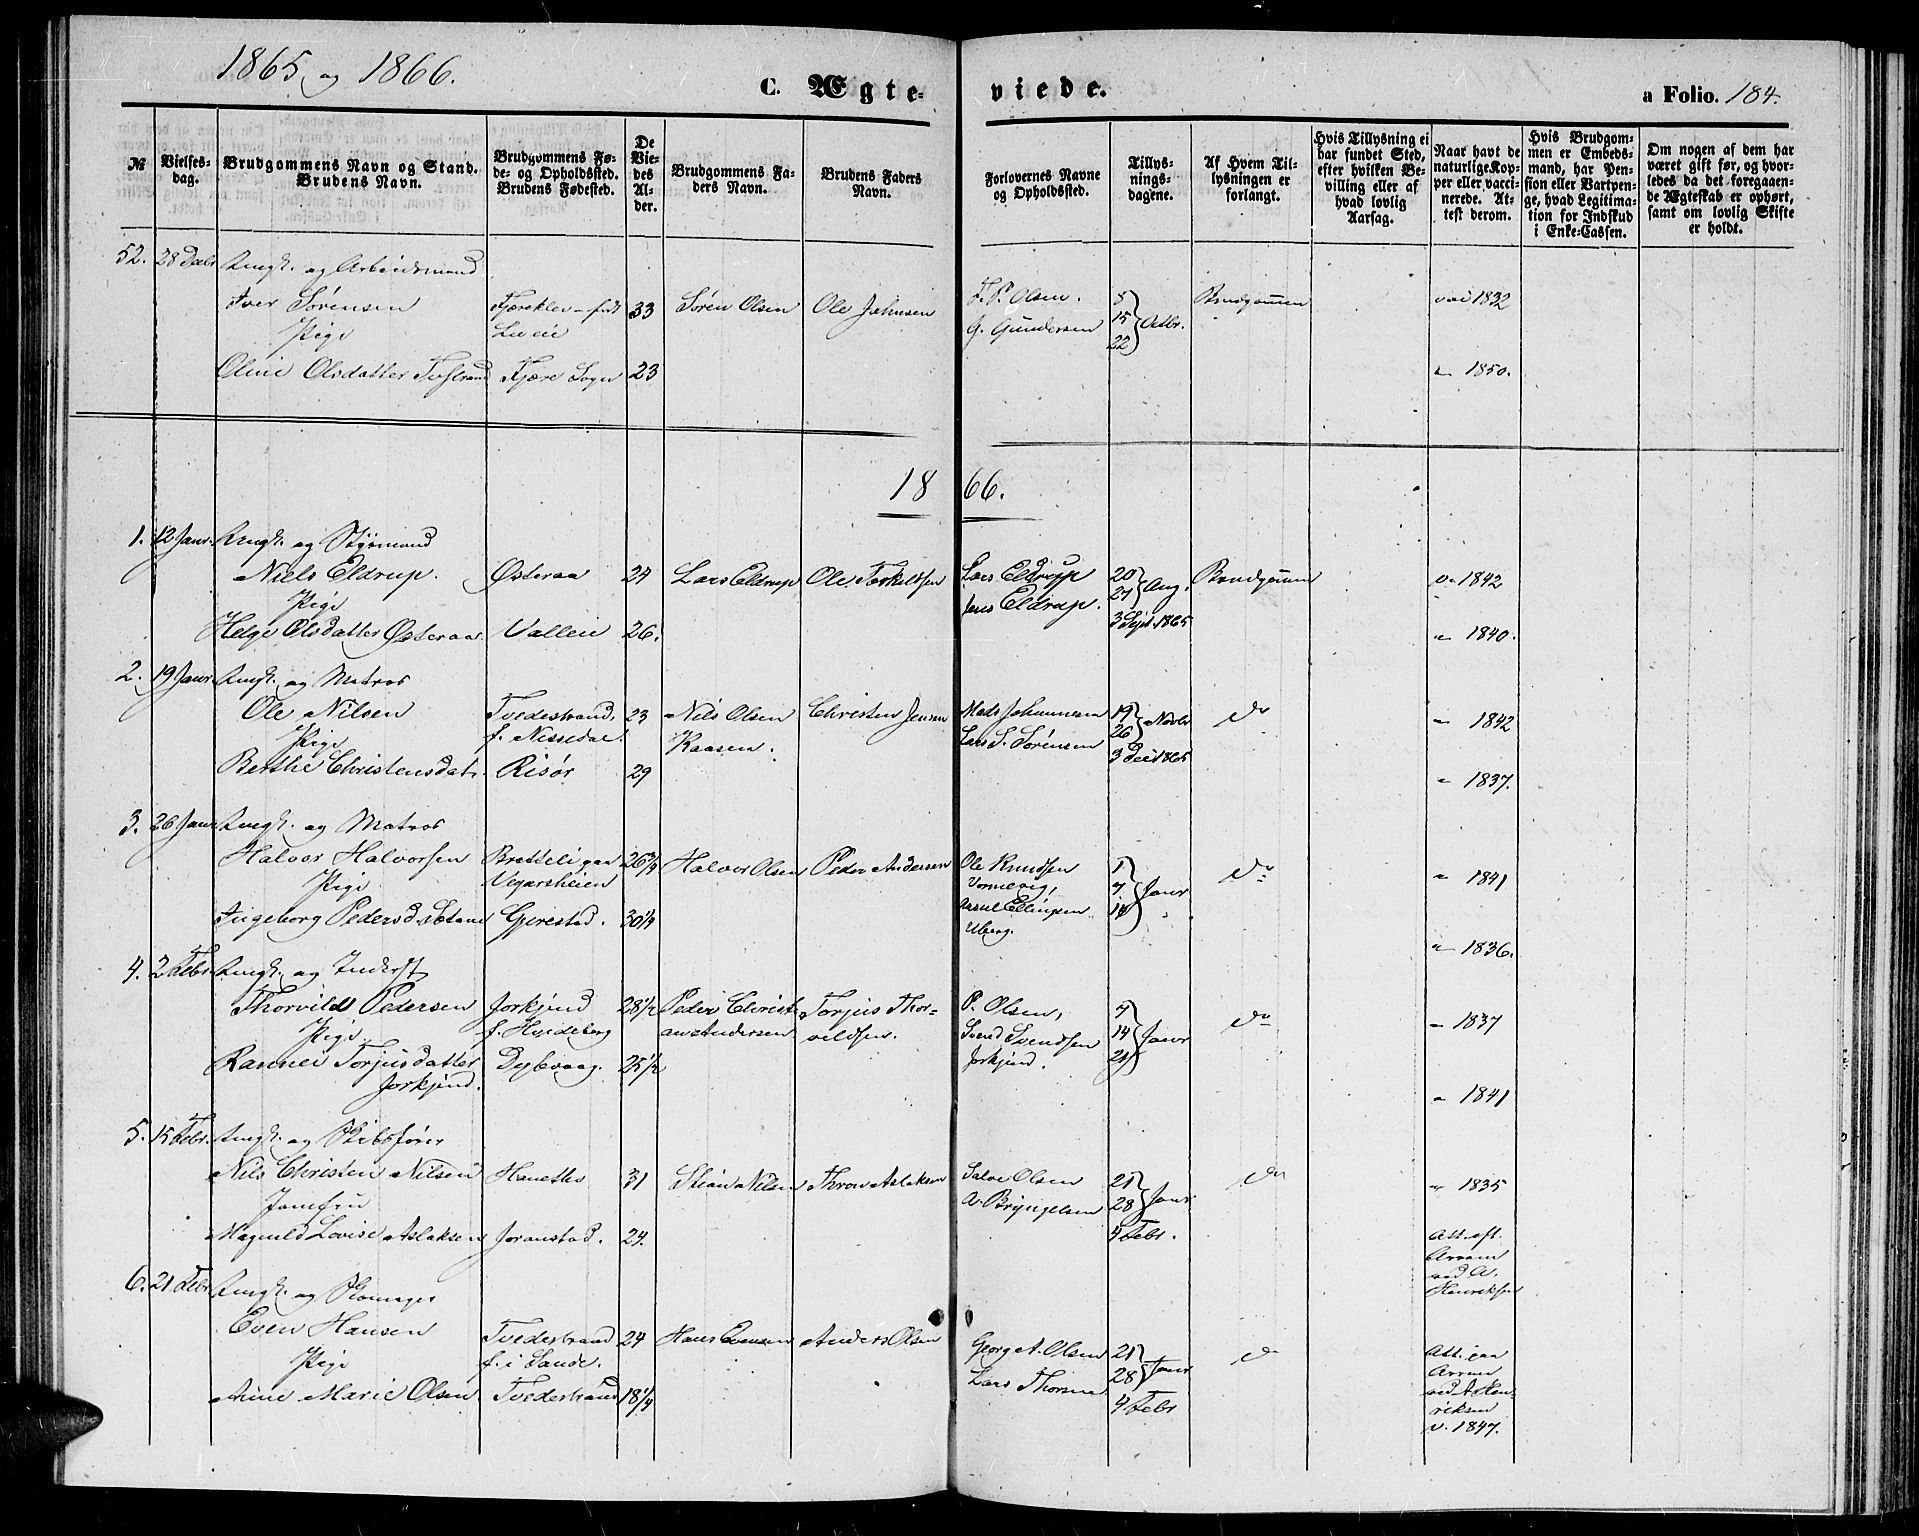 1865 og 1866.
C. Ægte-
viede.
a Folio. 184.
№
Vielses-
dag.
Brudgommens Navn og Stand.
Brudens Navn.
Brudgommens Fø-
de- og Opholdssted.
Brudens Fødested.
De
Vie-
des
Al-
der.
Brudgommens Fa-
ders Navn.
Brudens Faders
Navn.
Forlovernes Navne
og Opholdssted.
Tillys-
nings-
dagene.
Af Hvem Til-
lysningen er
forlangt.
Hvis Tillysning ei
har fundet Sted,
efter hvilken Be-
villing eller af
hvad lovlig
Aarsag.
Naar havt de
naturlige Kop-
per eller vacci-
nerede. At-
test derom.
Hvis Brudgom-
men er Embeds-
mand, har Pen-
sion eller Vartpen-
ge, hvad Legitima-
tion for Indskud
i Enke-Cassen.
Om nogen af dem har
været gift før, og hvor-
ledes da det foregaaen-
de Ægteskab er ophørt,
samt om lovlig Skifte
er holdt.
52. 28 Decbr Ungk. og Arbeidsmand
Iver Sørensen 33 Søren Olsen Ole Johnsen P. Olsen. 5 Brudgommen 1832
Pige G. Gundersen 15 Octbr.
22
Oline Olsdatter Fjære Sogn 23 1850.
18 66.
1. 12 Janr. Ungk. og Styrmand
Niels Eldrup. Østeraa 24 Lars Eldrup Ole Torkeldsen Lars Eldrup 20 Brudgommen v. 1842
Pige Jens Eldrup. 27 Aug.
Helge Olsdatter Østeraa Vallen 26. 3 Sept. 1865 " 1840.
2. 19 Janr. Ungk. og Matros
Ole Nilsen Tvedestrand, 23 Nils Olsen Christen Jensen Mads Johannesen 19 Novbr do " 1842
Pige f. Nissedal. Kaasen. Lars S. Sørensen 26
Berthe Christensdat. Risør 29 3 Dec 1865 " 1837.
3. 26 Janr Ungk. og Matros
Halvor Halvorsen paa 26 Halvor Olsen Peder Andersen Ole Knudsen 1 do " 1841
Pige Vegarsheien 7 Janr
Ingeborg Pedersd. Gjerestad. 30 1/4 Ellingsen 14
Uberg. " 1836.
4. 2 Febr. Ungk. og Inderst
Thorvild Pedersen Jorkjend 28 1/2 Peder Christi- Torjus Thor- P. Olsen, 7 do " 1837
Pige. f. Hvideberg an Andersen vildsen. Svend Svendsen 14 Janr
Torjusdatter Dybvaag. 25 1/2 Jorkjend. 21
Jorkjend. " 1841
5. 15 Febr. Ungk. og Skibsfører
Nils Christen Nilsen 31 Stian Nilsen Aslaksen Salve Olsen 21 do " 1835
Jomfru A. Bryngelsen 28 Janr
Lovise Aslaksen Joranstad. 24. 4 Febr. Att. eft.
Arrom
ved A.
Henriksen
6. 21 Febr Ungk. og Skomager
Even Hansen Tvedestrand 24 Hans Evensen Anders Olsen Georg A. Olsen 21 do Att. paa
Pige f. i Sande. Lars 28 Janr Arrom
Anne Marie Olsen. Tvedestrand 18 1/4 4 Febr ved A Hen-
riksen
v. 1847.